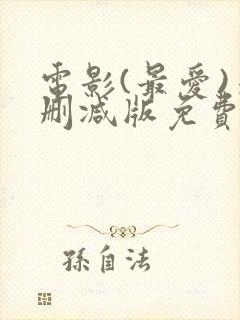 電影(最愛)
刪減版免費
孫自法